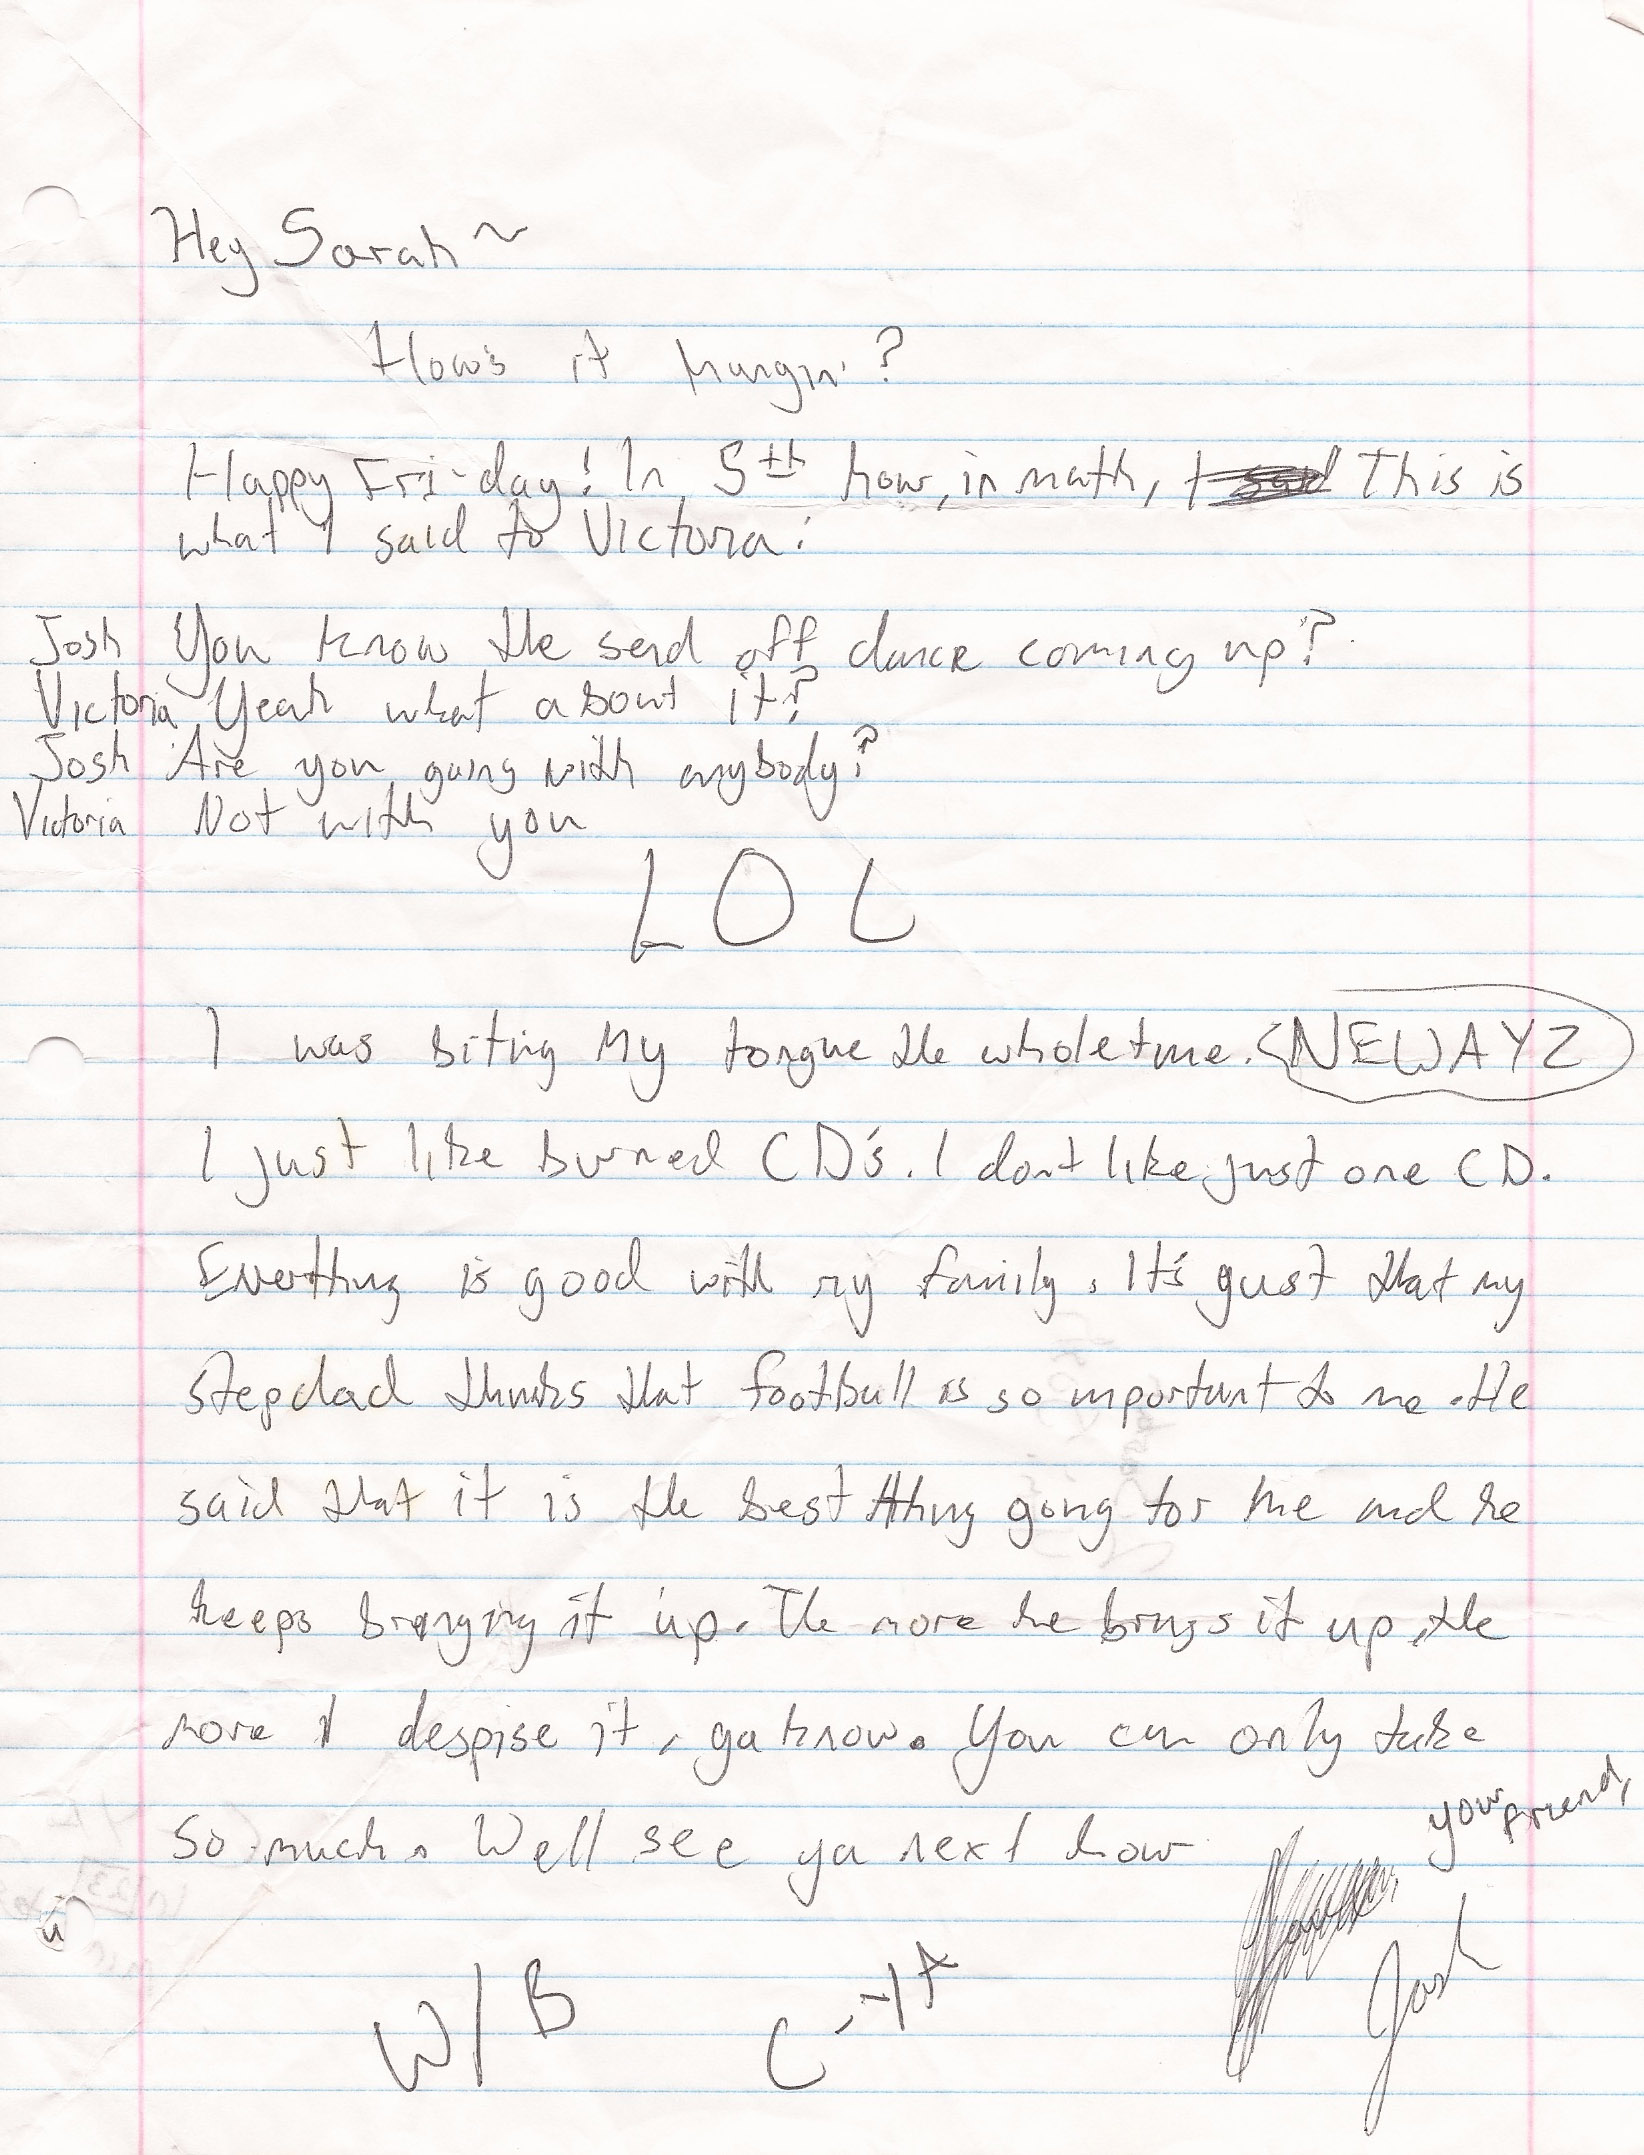 Hey Sarah ~
How's it hangin'?
Happy Fri-day! In 5th hour, in math, I This is
what I said to Victoria:
Josh You know the send off dance coming up?
Victoria Yeah what about it?
Josh Are you going with anybody?
Victoria Not with you
LOL
I was biting my tongue the whole time. <NEWAYZ
I just like burned CD's. I don't like just one CD.
Everthing is good with my family. It's gust that my
stepdad thinks that football is so important to me. He
said that it is the best thing going for me and he
keeps bringing it up. The more he brings it up, the
more I despise it, ya know. You can only take
so much. Well see ya next hour
your friend,
Josh
W/B C-YA